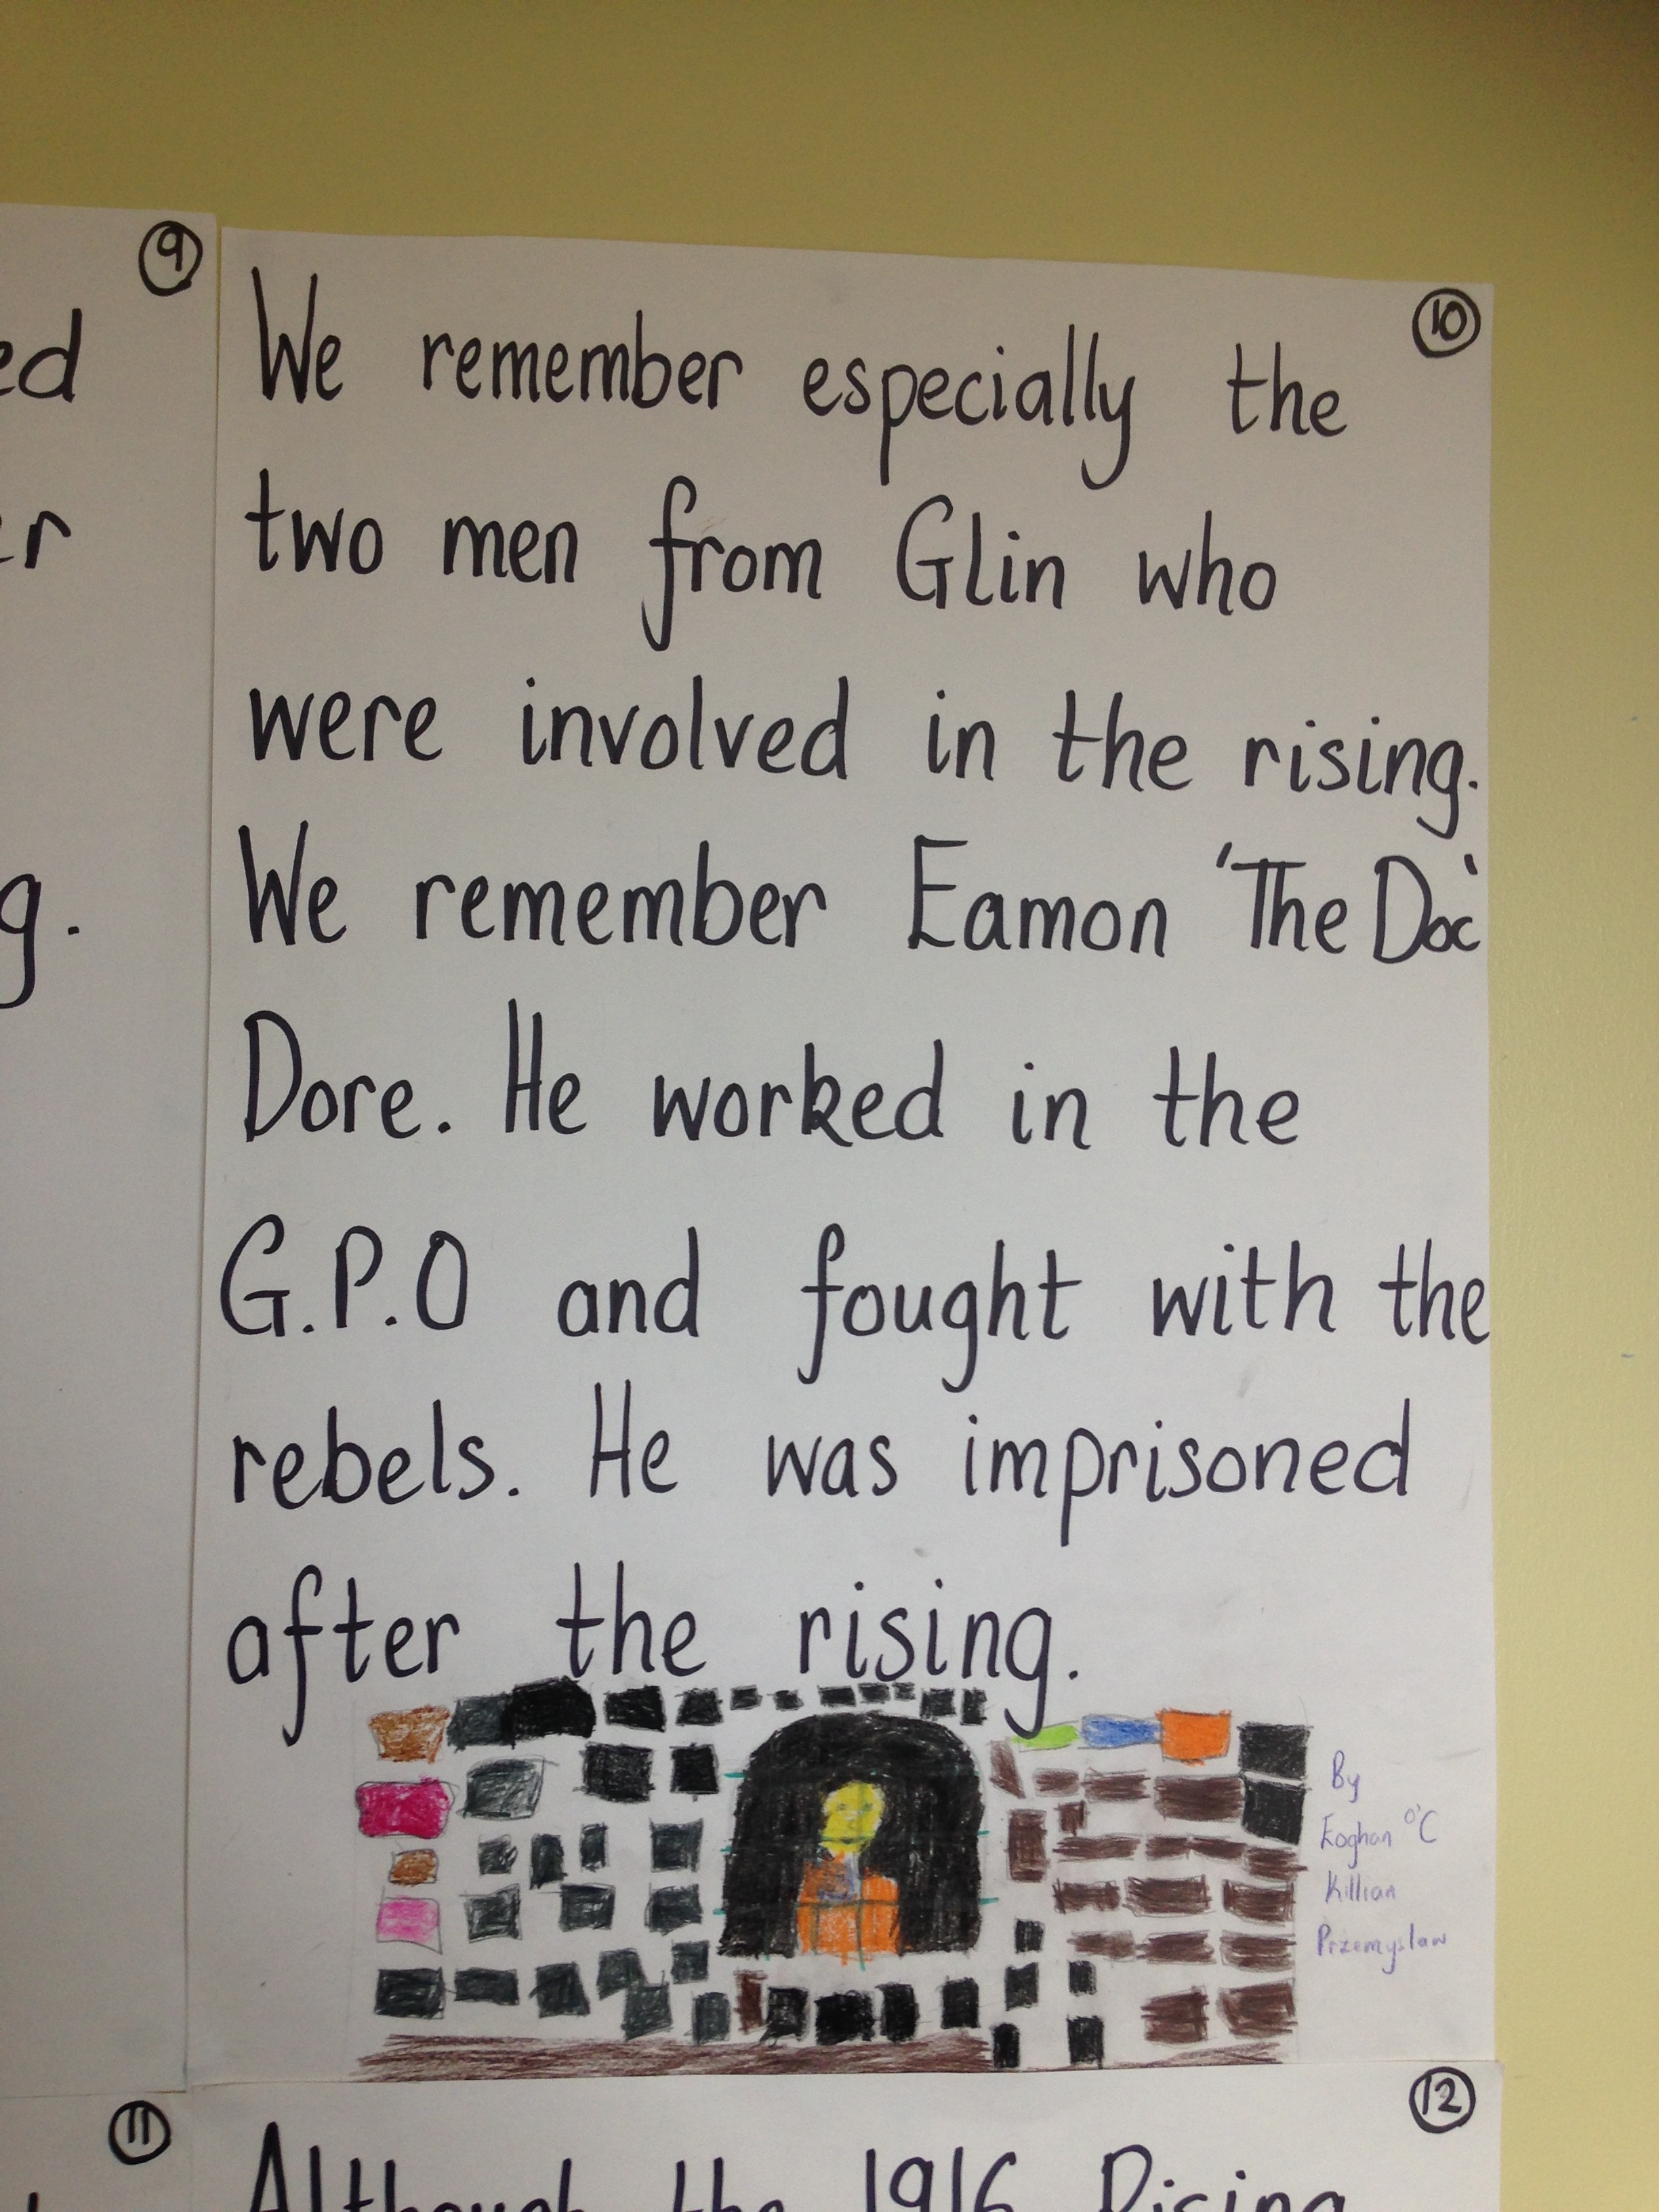 9
ed
er
g.
10
We remember especially the
two men from Glin who
were involved in the rising.
We remember Eamon 'The Doc'
Dore. He worked in the
G.P.O and fought with the
rebels. He was imprisoned
after the rising.
By
Eoghan O'C
Killian
Przemyslaw
11
12
Although the 1916 Rising